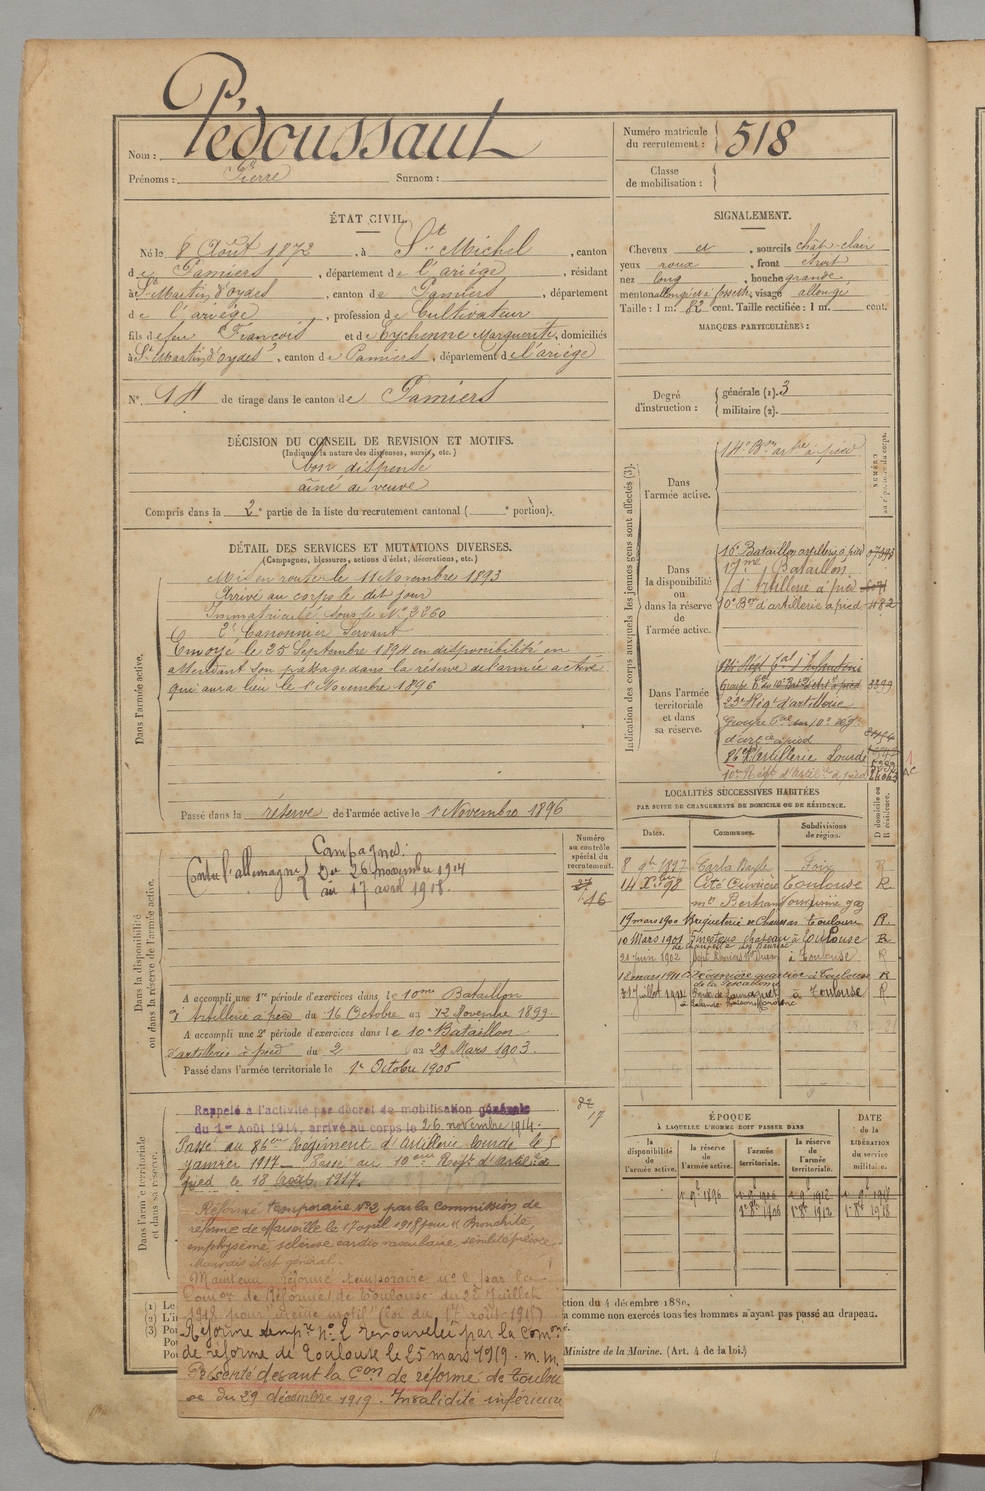 Nom : Pédoussaut
Prénoms : Pierre Surnom :
Numéro matricule du recrutement : 518
Classe de mobilisation :
ÉTAT CIVIL.
Né le 8 Août 1872, à St Michel, canton
de Pamiers, département de l'ariège, résidant
à St Martin d'oydes, canton de Pamiers, département
de l'ariège, profession de Cultivateur
fils de feu François et de Eychenne Marguerite, domiciliés
à St Martin d'oydes, canton de Pamiers, département de l'ariège
N° 14 de tirage dans le canton de Pamiers
SIGNALEMENT.
Cheveux et, sourcils chât-clair
yeux roux, front étroit
nez long, bouche grande
menton allongé et à fossette, visage allongé
Taille : 1 m. 62 cent. Taille rectifiée : 1 m. cent.
MARQUES PARTICULIÈRES :
Degré d'instruction : générale (1). 3
militaire (2).
DÉCISION DU CONSEIL DE REVISION ET MOTIFS.
(Indiquer la nature des dispenses, sursis, etc.)
bon dispensé
aîné de veuve
Compris dans la 2e partie de la liste du recrutement cantonal ( e portion).
DÉTAIL DES SERVICES ET MUTATIONS DIVERSES.
(Campagnes, blessures, actions d'éclat, décorations, etc.)
Dans l'armée active.
Mis en route le 11 Novembre 1893
Arrivé au corps le dit jour
Immatriculé sous le N° 3260
2e Canonnier Servant
Envoyé le 25 Septembre 1894 en disponibilité en
attendant son passage dans la réserve de l'armée active
qui aura lieu le 1er Novembre 1896
Passé dans la réserve de l'armée active le 1er Novembre 1896
Indication des corps auxquels les jeunes gens sont affectés (3).
NUMÉRO au répertoire du corps.
Dans l'armée active.
14e Bon artie à pied
Dans la disponibilité ou dans la réserve de l'armée active.
16e Bataillon artillerie à pied
17me Bataillon
d'Artillerie à pied
10e Bon d'artillerie à pied 482
Dans l'armée territoriale et dans sa réserve.
3299
23e Régt d'artillerie
Groupe
d'artie à pied
86e d'artillerie Lourde
10me Régt d'artillie à pied
Dans la disponibilité ou dans la réserve de l'armée active.
Numéro au contrôle spécial du recrutement.
46
Campagnes:
Contre l'allemagne Du 26 novembre 1914
au 17 avril 1918.
A accompli une 1re période d'exercices dans le 10me Bataillon
d'Artillerie à pied du 16 Octobre au 12 Novembre 1899
A accompli une 2e période d'exercices dans le 10e Bataillon
d'artillerie à pied du 2 au 29 Mars 1903.
Passé dans l'armée territoriale le 1er Octobre 1906
LOCALITÉS SUCCESSIVES HABITÉES
PAR SUITE DE CHANGEMENTS DE DOMICILE OU DE RÉSIDENCE.
D domicile ou R résidence.
Dates. Communes. Subdivisions de région.
8 9bre 1897 Carla Bayle Foix R
14 Xbre 98 Cité Ouvrière Toulouse R
19 mars 1900 Briqueterie Toulouse R.
10 Mars 1901 à Toulouse R
21 Juin 1902 à Toulouse R
18 mars 1911 à Toulouse R
31 Juillet 1914 à Toulouse R
Dans l'armée territoriale et dans sa réserve.
Rappelé à l'activité par décret de mobilisation générale
du 1er Août 1914, arrivé au corps le 26 novembre 1914.
Passé au 86eme Régiment d'Artillerie lourde le 5
janvier 1917 — Passé au 10eme Régt d'Artillie à
pied le 18 août 1917.
Réformé temporaire N°2 par la Commission de
réforme de Marseille le 17 avril 1918 pour « Bronchite,
emphysème, sclérose cardio vasculaire, sénilité précoce
Mauvais état général.
Maintenu réformé temporaire n° 2 par la
Comon de Réforme de Toulouse du 22 Juillet
1918 pour même motif (loi du 17 août 1915)
Réforme tempre N° 2 renouvelée par la comon
de réforme de Toulouse le 25 mars 1919. m. m.
Présenté devant la Con de réforme de Toulou
se du 29 décembre 1919. Invalidité inférieure
ÉPOQUE
À LAQUELLE L'HOMME DOIT PASSER DANS
DATE de la LIBÉRATION du service militaire.
la disponibilité de l'armée active. la réserve de l'armée active. l'armée territoriale. la réserve de l'armée territoriale.
1er 9bre 1896 1er 9bre 1906 1er 9bre 1912 1er 9bre 1918
1er 8bre 1906 1er 8bre 1912 1er 8bre 1918
(1) Le
(2) L'i
(3) Pou
Pou
Pou
ction du 4 décembre 1889.
a comme non exercés tous les hommes n'ayant pas passé au drapeau.
Ministre de la Marine. (Art. 4 de la loi.)